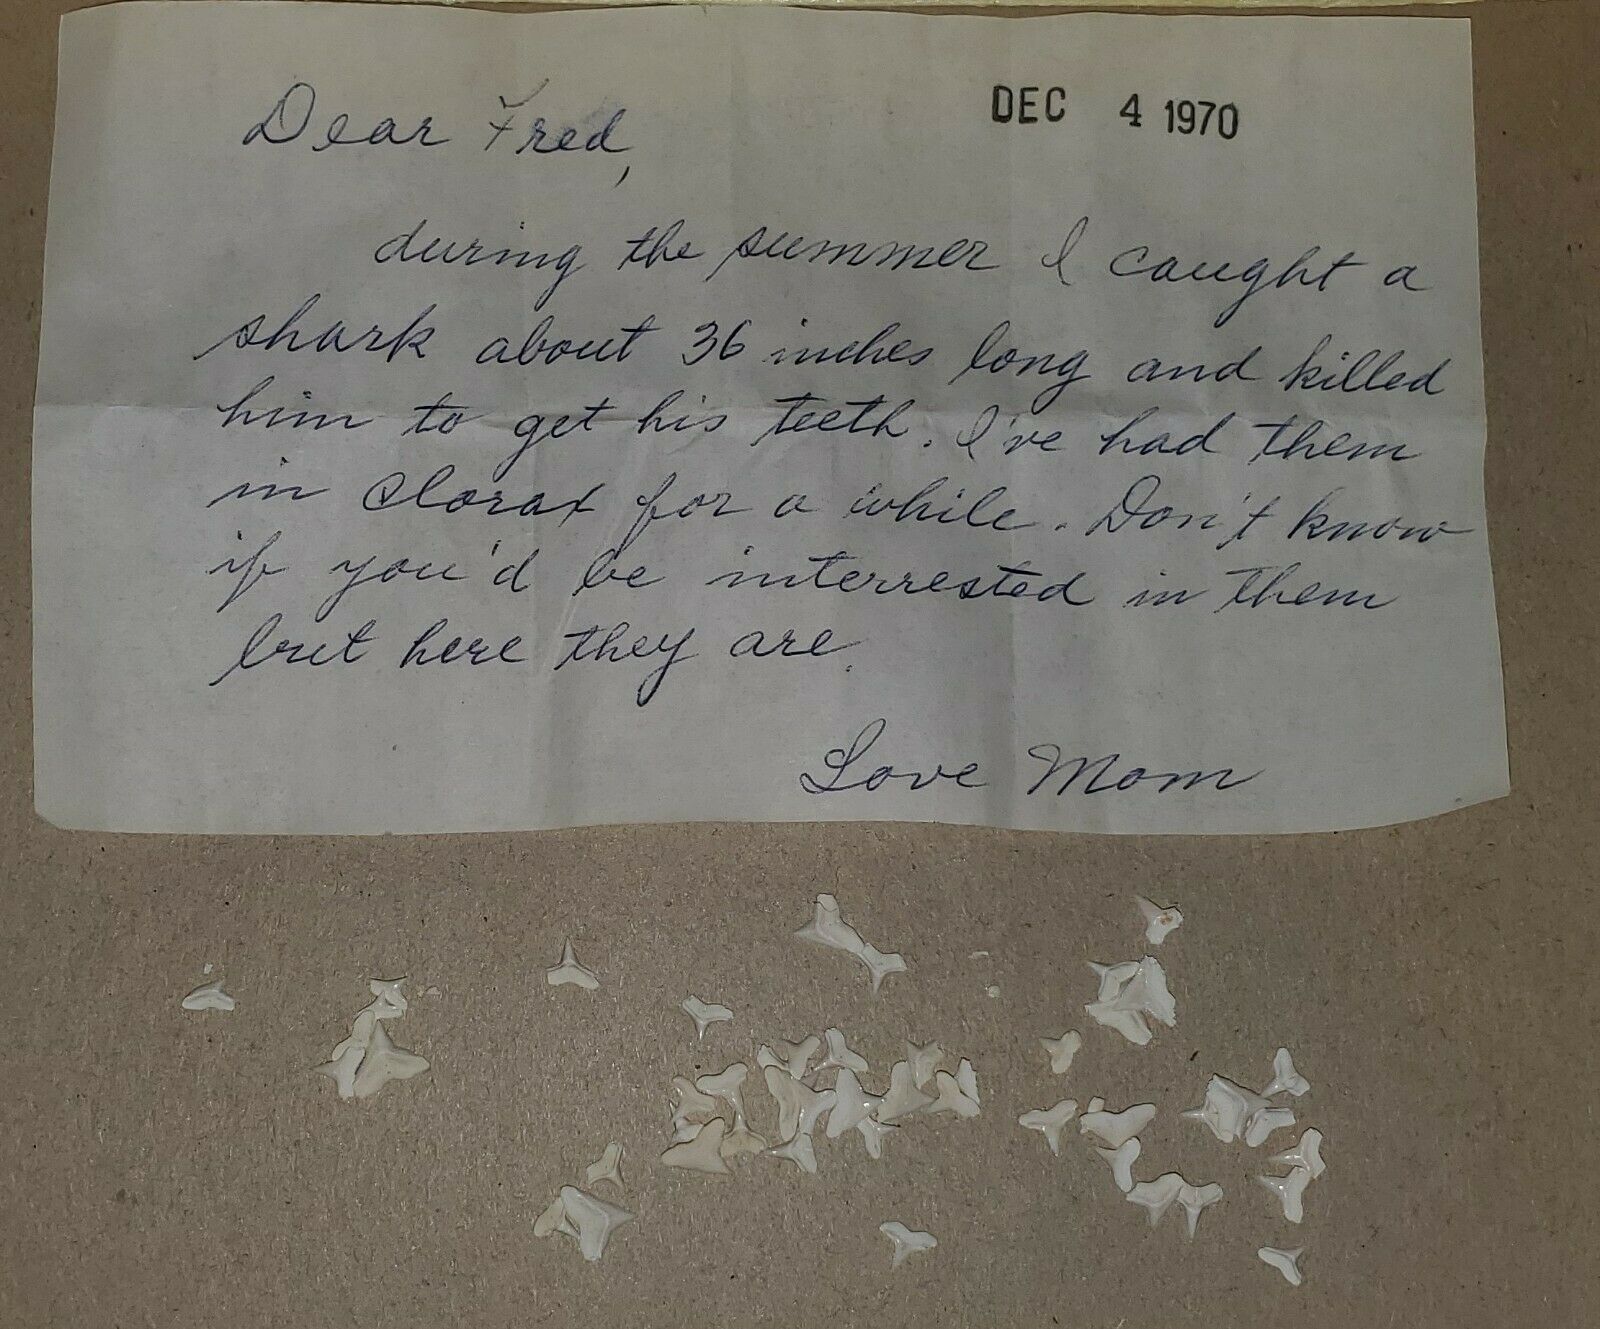 Dear Fred,
DEC 4 1970
during the summer I caught a
shark about 36 inches long and killed
him to get his teeth. I've had them
in Clorax for a while. Don't know
if you'd be interrested in them
but here they are.
Love Mom